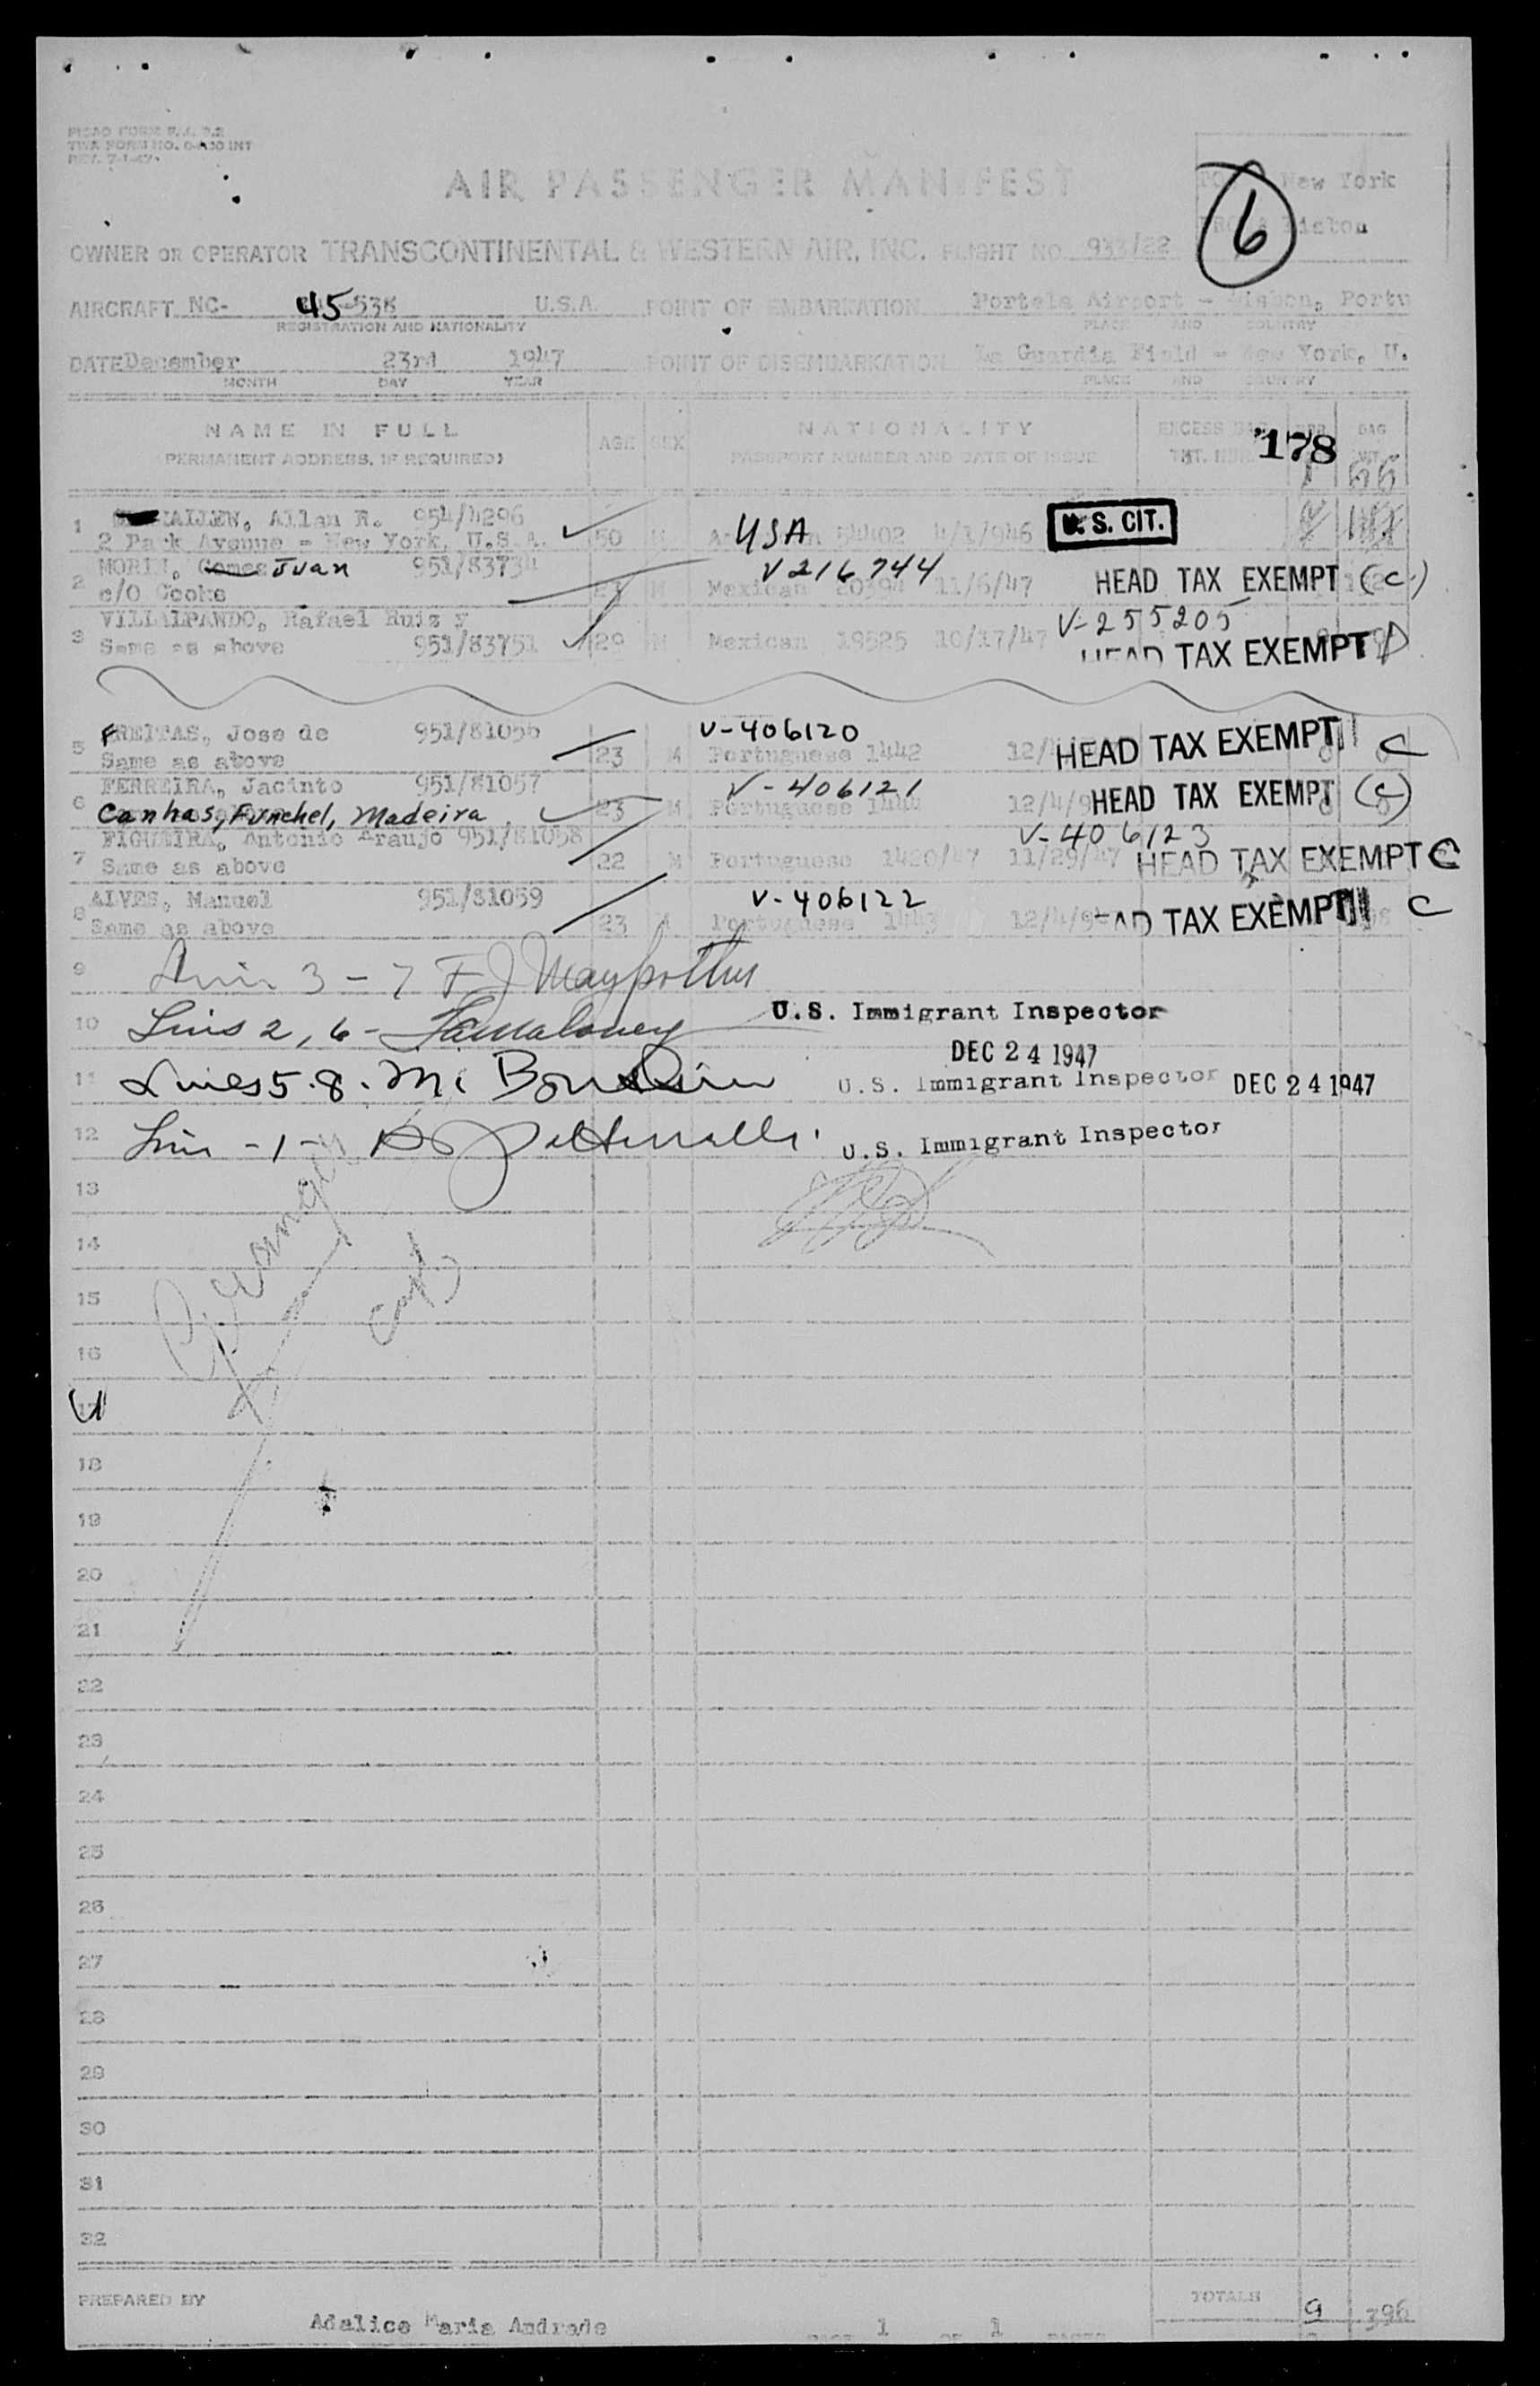 TWA FORM NO.
AIR PASSENGER MANIFEST
New York
6
OWNER OR OPERATOR TRANSCONTINENTAL & WESTERN AIR, INC. FLIGHT NO. 933/22
AIRCRAFT NC- 45-538 U.S.A. POINT OF EMBARKATION Portela Airport - Lisbon, Portu
REGISTRATION AND NATIONALITY PLACE AND COUNTRY
DATE December 23rd 1947 POINT OF DISEMBARKATION La Guardia Field - New York, U.
MONTH DAY YEAR PLACE AND COUNTRY
NAME IN FULL AGE SEX NATIONALITY EXCESS BAG
(PERMANENT ADDRESS, IF REQUIRED) PASSPORT NUMBER AND DATE OF ISSUE 178
1 Allan R. 954/4296 50 USA 4/1/946 U.S. CIT.
2 Park Avenue - New York, U.S.A.
2 Gomez Juan V216744
c/o Cooks Mexican 11/6/47 HEAD TAX EXEMPT (C)
3 VILLALPANDO, Rafael Ruiz y V-255205
Same as above 951/83751 29 M Mexican 19525 10/17/47 HEAD TAX EXEMPT
5 FREITAS, Jose de 951/81056 V-406120
Same as above 23 M Portuguese 1442 HEAD TAX EXEMPT C
6 FERREIRA, Jacinto 951/81057 V-406121
Canhas, Funchel, Madeira 23 M Portuguese 12/4/9 HEAD TAX EXEMPT (C)
7 Antonio Araujo 951/81058 V-406123
Same as above 22 M Portuguese 1420/47 11/29/47 HEAD TAX EXEMPT C
8 ALVES, Manuel 951/81059 V-406122
Same as above 23 M Portuguese 1443 12/4/9 AD TAX EXEMPT C
9 3 - 7
10 2, 6 - U.S. Immigrant Inspector
DEC 24 1947
11 Lines 5.8. U.S. Immigrant Inspector DEC 24 1947
12 - 1 - U.S. Immigrant Inspector
13
14
15
16
18
19
20
21
22
23
24
25
26
27
28
29
30
31
32
PREPARED BY TOTALS 9 396
Adalice Maria Andrade 1 OF 1 PAGES